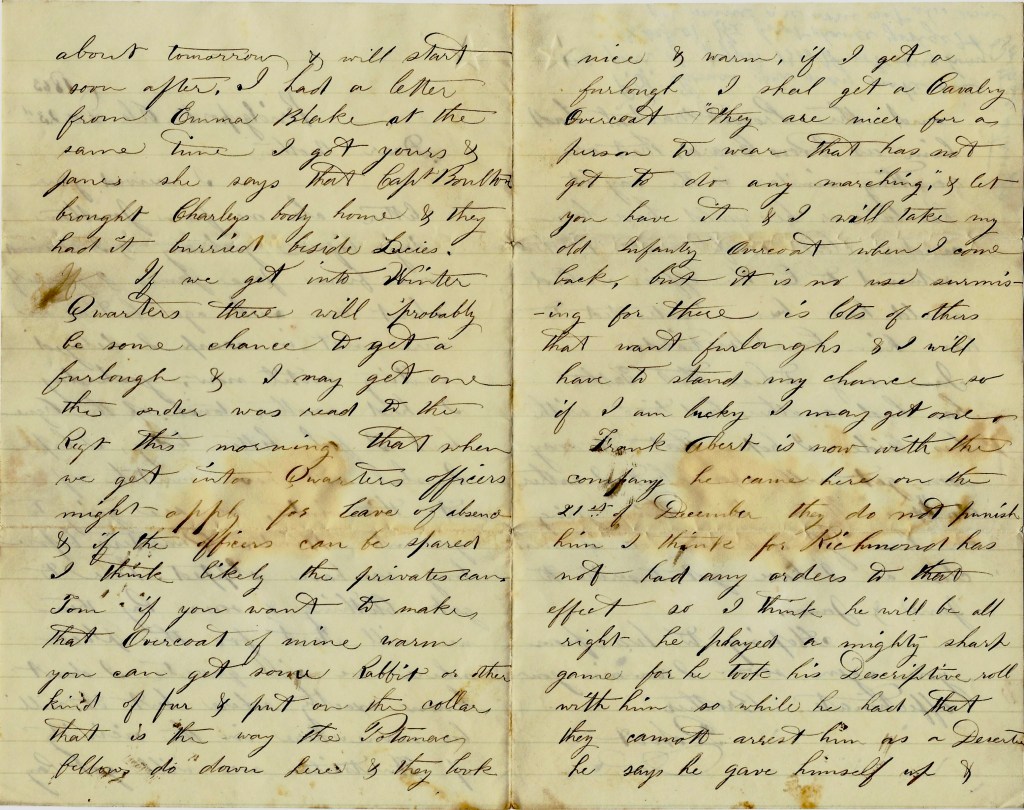 about tomorrow & will start
soon after. I had a letter
from Emma Blake at the
same time I got yours &
Janes she says that Capt Boulton
brought Charleys body home & they
had it burried beside Lucies.
If we get into Winter
Quarters there will probably
be some chance to get a
furlough & I may get one
the order was read to the
Regt this morning that when
we get into Quarters officers
might apply for leave of absence
& if the officers can be spared
I think likely the privates can
Tom "if you want to make
that Overcoat of mine warm
you can get some Rabbit or other
kind of fur & put on the collar
that is the way the Potomac
fellows do down here & they look
nice & warm, if I get a
furlough I shal get a Cavalry
Overcoat "they are nicer for a
person to wear that has not
got to do any marching," & let
you have it & I will take my
old Infanty Overcoat when I come
back, but it is no use surmis-
-ing for there is lots of others
that want furloughs & I will
have to stand my chance so
if I am lucky I may get one.
Frank is now with the
company he came here on the
21st of December they do not punish
him I think for Richmond has
not had any orders to that
effect so I think he will be all
right he played a mighty sharp
game for he took his Descriptive roll
with him so while he had that
they cannott arrest him as a Deserter
he says he gave himself up &